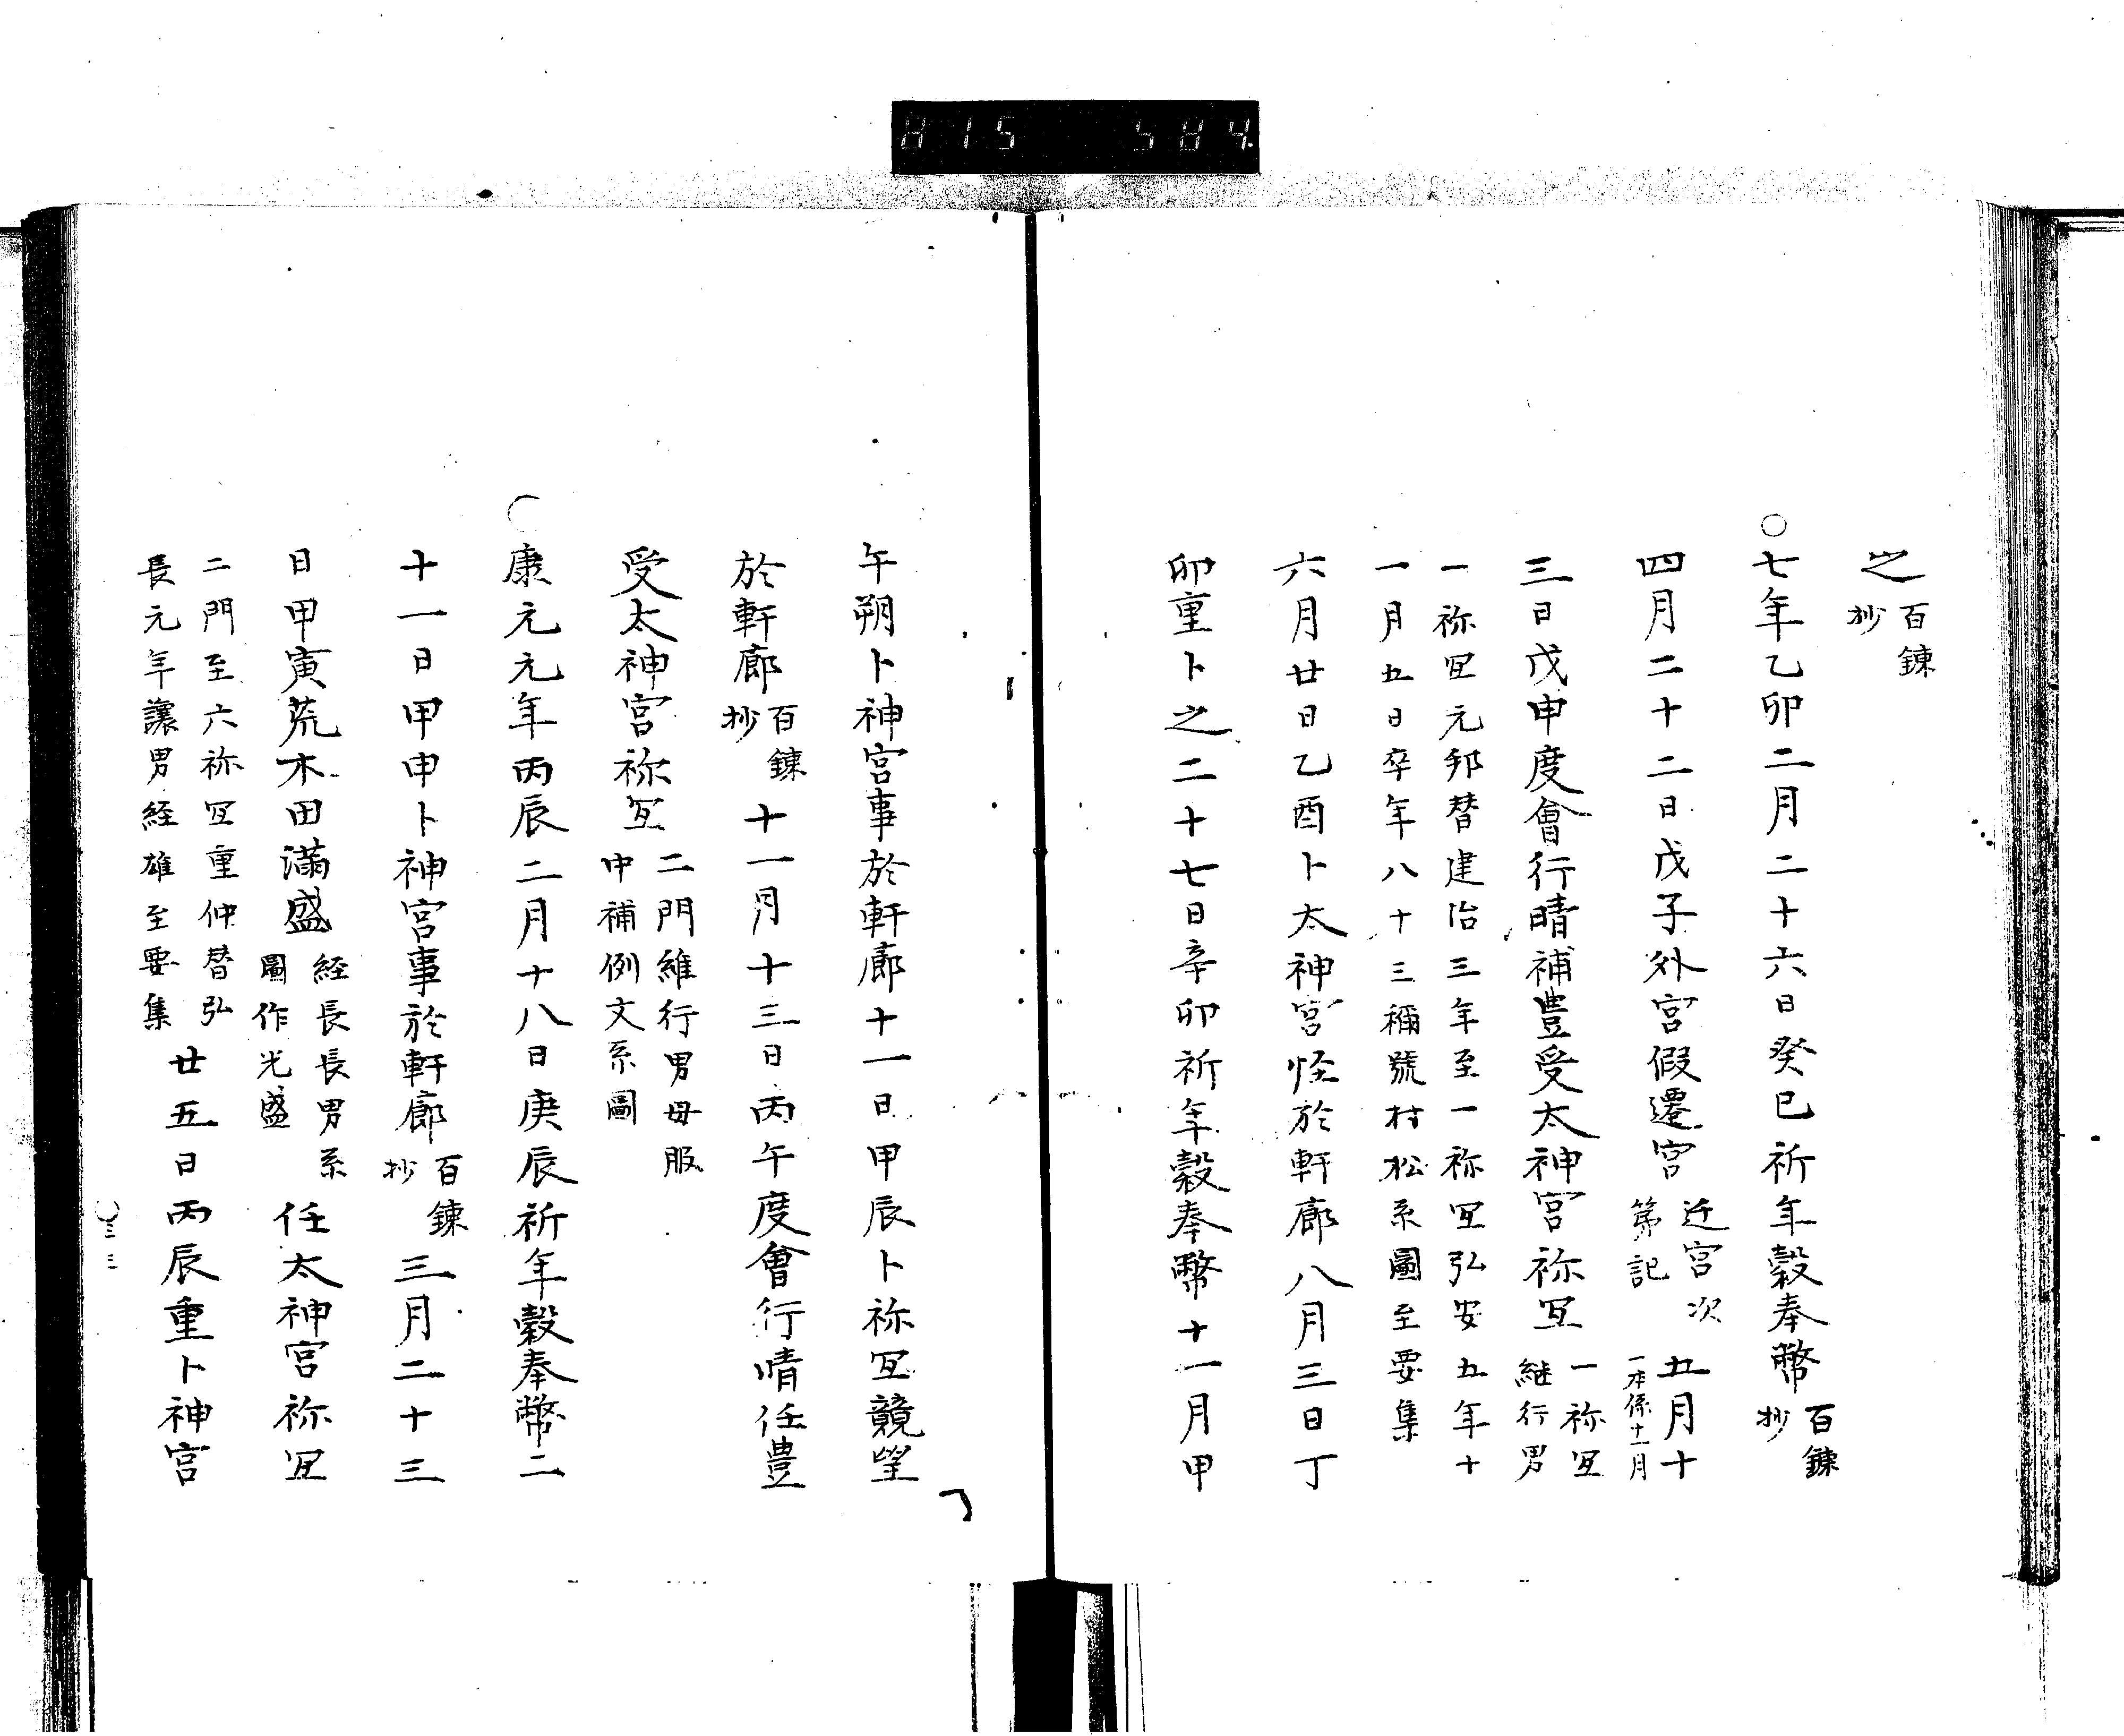 815 584
之百錬抄
○七年乙卯二月二十六日癸巳祈年穀奉幣百錬抄
四月二十二日戊子外宮假遷宮迁宮次第記五月十一本係十一月
三日戊申度會行晴補豊受太神宮祢冝一祢冝継行男
一祢冝元邦替建治三年至一祢冝弘安五年十
一月五日卒年八十三禰號村松系圖至要集
六月廿日乙酉卜太神宮怪於軒廊八月三日丁
卯重卜之二十七日辛卯祈年穀奉幣十一月甲
午朔卜神宮事於軒廊十一日甲辰卜祢冝競望
於軒廊百錬抄十一月十三日丙午度會行晴任豊
受太神宮祢冝二門維行男母服中補例文系圖
○康元元年丙辰二月十八日庚辰祈年穀奉幣二
十一日甲申卜神宮事於軒廊百錬抄三月二十三
日甲寅荒木田満盛経長長男系圖作光盛任太神宮祢冝
二門至六祢冝重仲替弘
長元年譲男経雄至要集廿五日丙辰重卜神宮